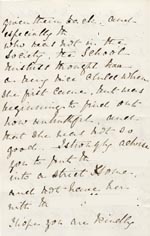 given them back, and
especially to
who was not in the
Society. The School
Mistress thought her
a very nice child when
she first came, but was
beginning to find out
how untruthful, and
that she was not so
good. I strongly advise
you to put
into a strict Home,
and not have her
with
I hope you are kindly